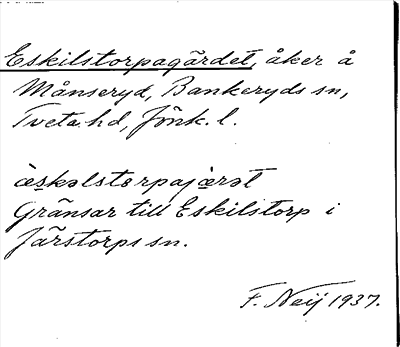 Eskilstorpagärdet, åker å
Månseryd, Bankeryds sn,
Tveta hd, Jönk. l.
èskəlstorpajærət
Gränsar till Eskilstorp i
Järstorps sn.
F. Neij 1937.